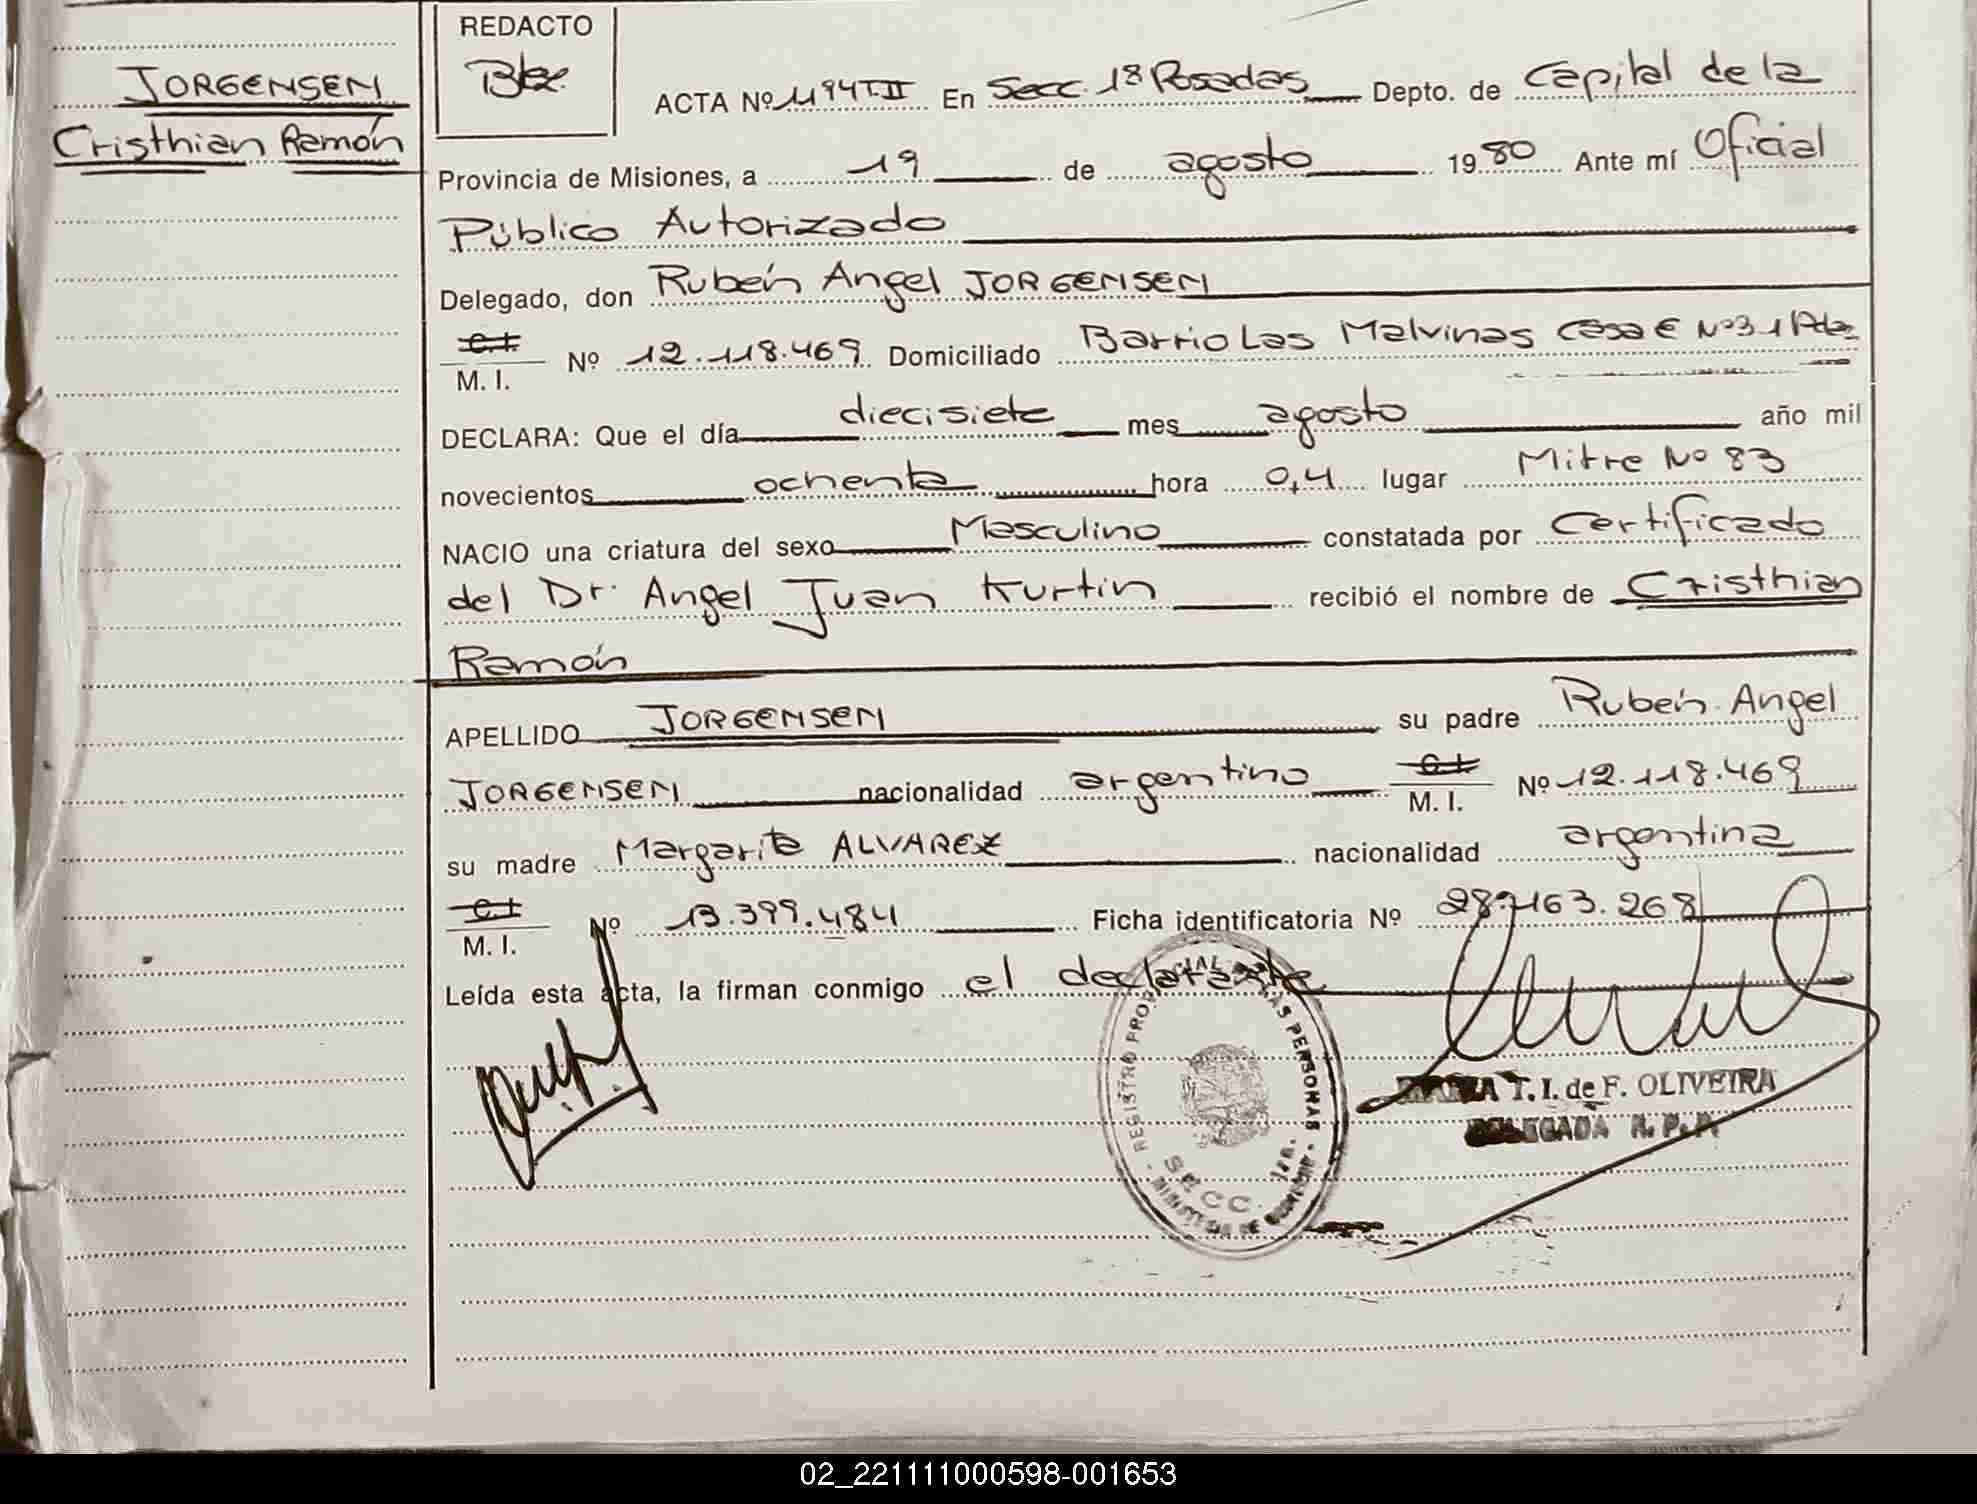 JORGENSEN
Cristhian Ramón
REDACTO
ACTA Nº 1194 T.II En Secc. 1ª Posadas Depto. de Capital de la
Provincia de Misiones, a 19 de agosto 1980 Ante mí Oficial
Público Autorizado
Delegado, don Rubén Angel JORGENSEN
C.I.
M. I. Nº 12.118.469 Domiciliado Barrio Las Malvinas Casa E Nº 31 Pdas
DECLARA: Que el día diecisiete mes agosto año mil
novecientos ochenta hora 0,4 lugar Mitre Nº 83
NACIO una criatura del sexo Masculino constatada por Certificado
del Dr. Angel Juan Kurtin recibió el nombre de Cristhian
Ramón
APELLIDO JORGENSEN su padre Rubén Angel
JORGENSEN nacionalidad argentino C.I.
M. I. Nº 12.118.469
su madre Margarita ALVAREZ nacionalidad argentina
C.I.
M. I. Nº 13.399.484 Ficha identificatoria Nº 28.163.268
Leída esta acta, la firman conmigo el declarante
REGISTRO PROVINCIAL DE LAS PERSONAS
SECC. 1ra.
MINISTERIO DE GOBIERNO
MARIA T. I. de F. OLIVEIRA
DELEGADA R. P. P.
02_221111000598-001653